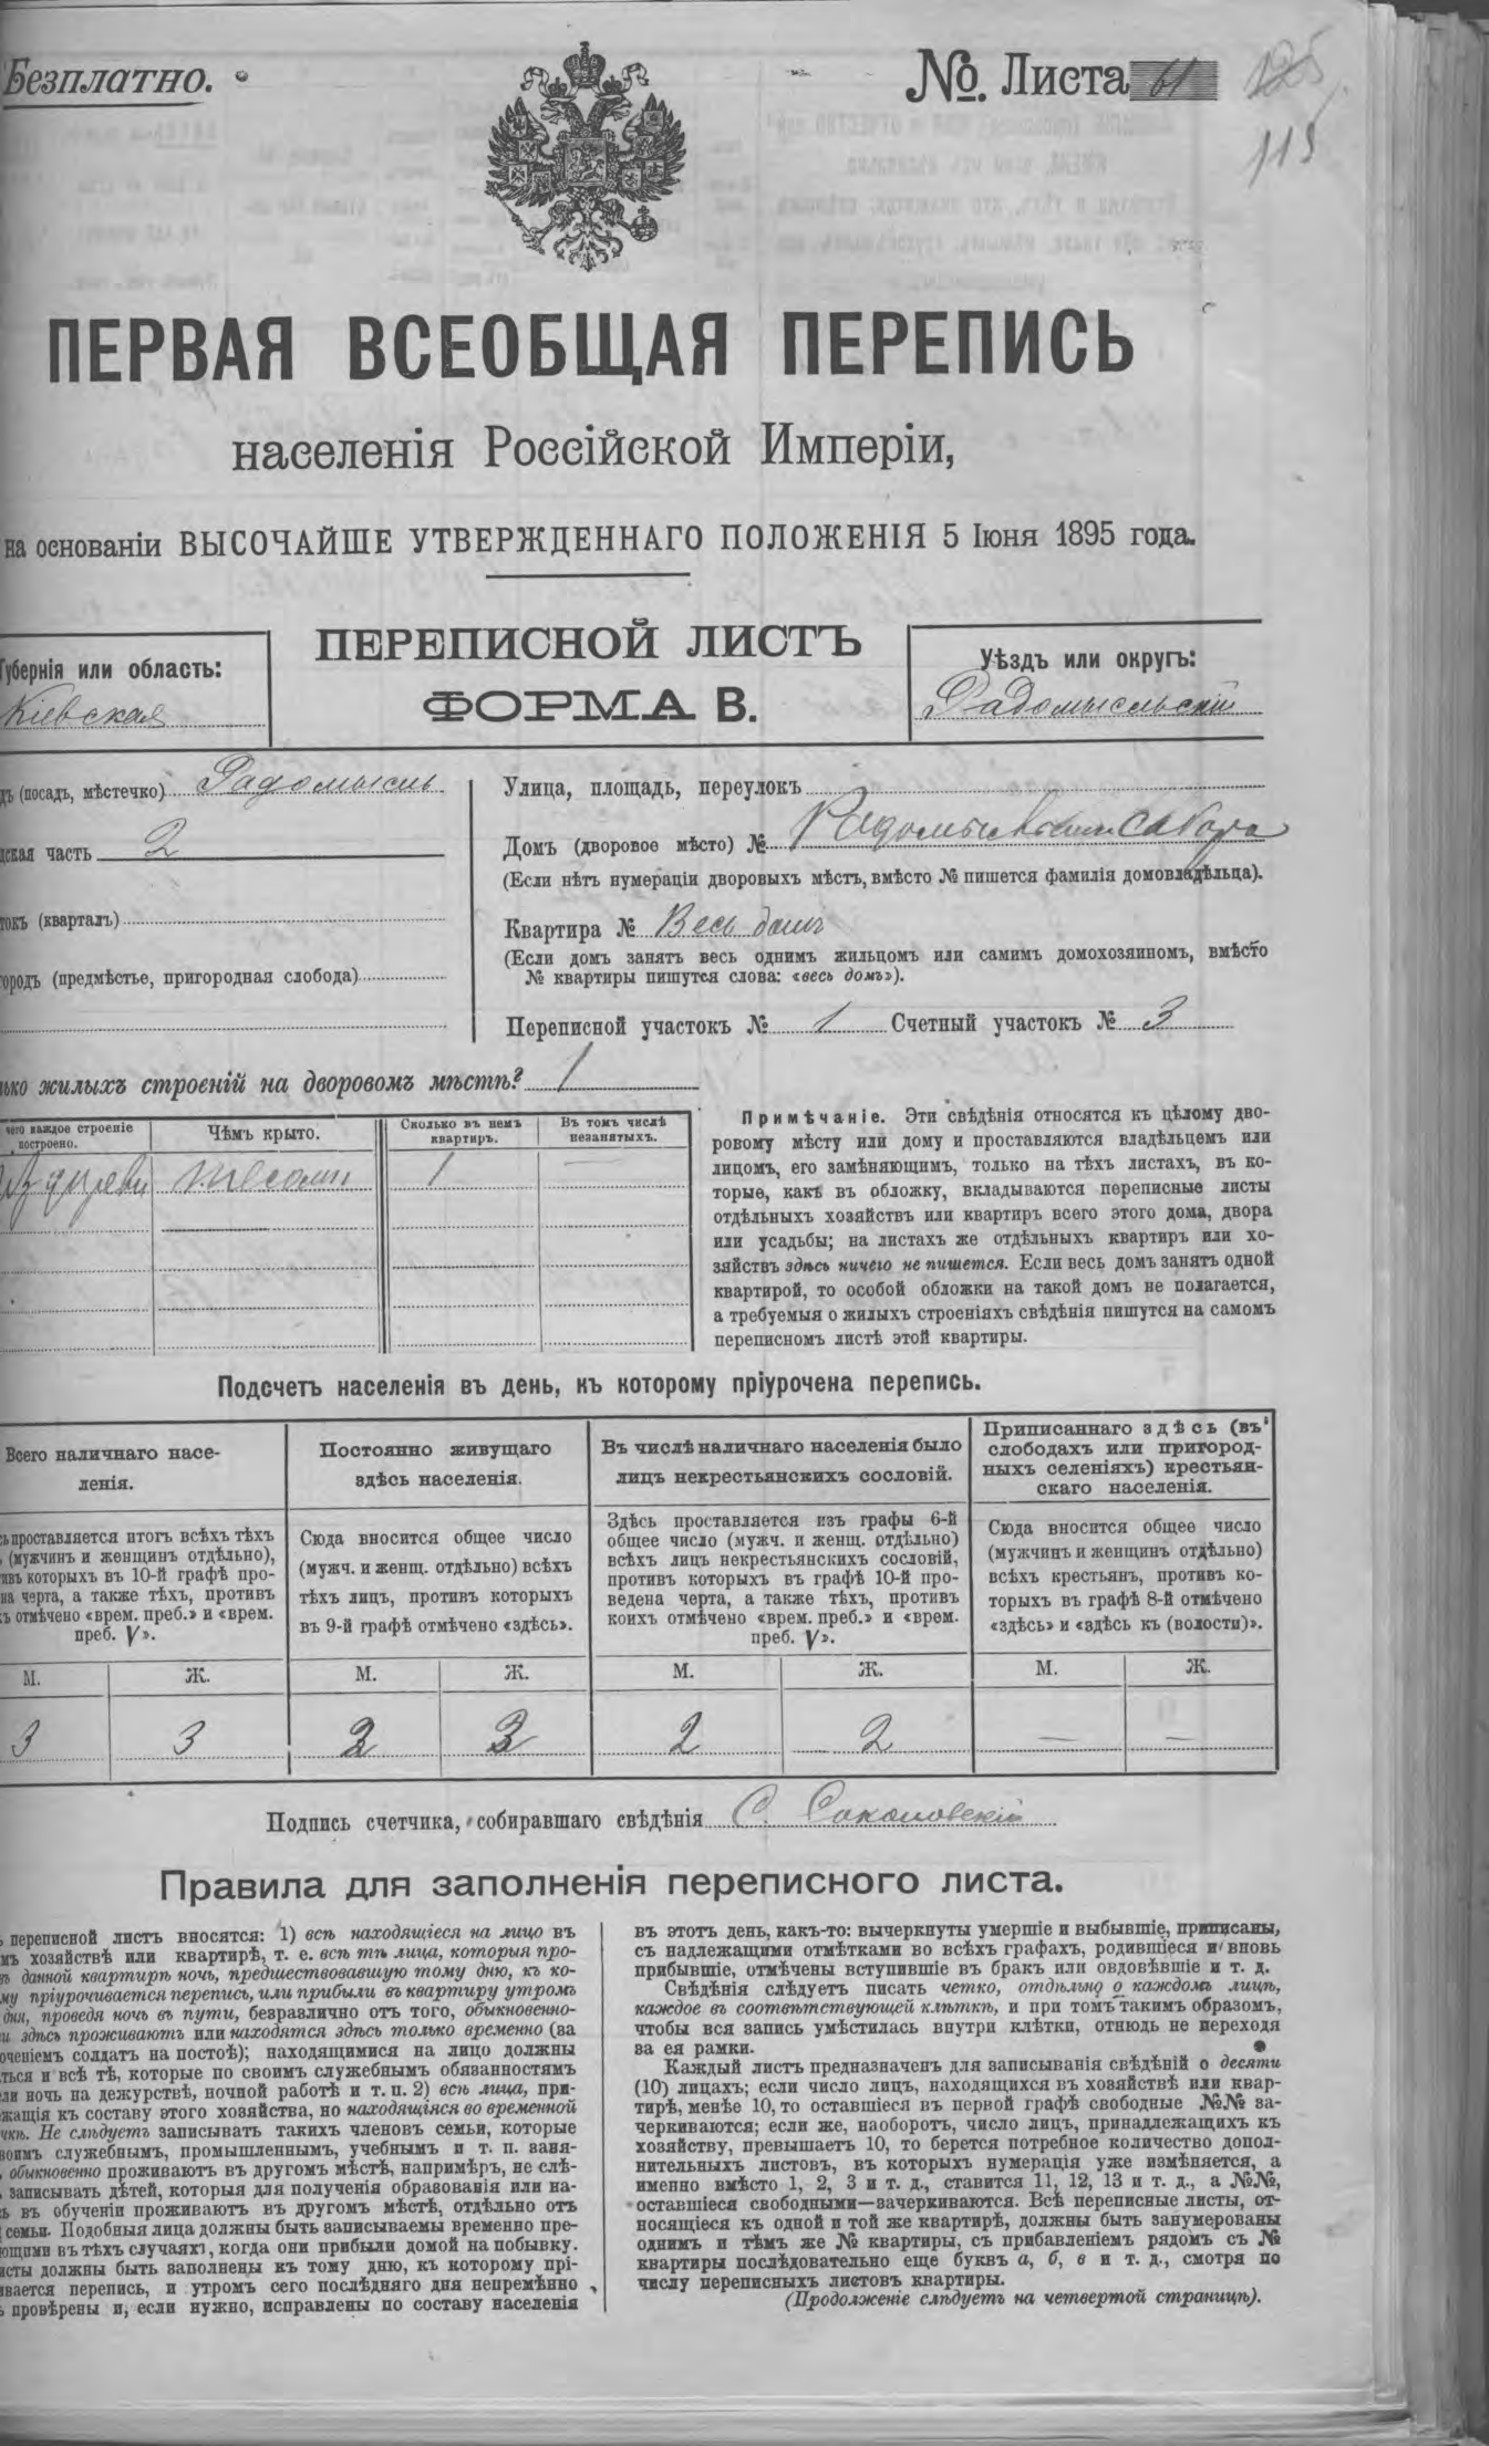 Безплатно.
№. Листа 61
125
115
ПЕРВАЯ ВСЕОБЩАЯ ПЕРЕПИСЬ
населенія Россійской Имперіи,
на основаніи ВЫСОЧАЙШЕ УТВЕРЖДЕННАГО ПОЛОЖЕНІЯ 5 Іюня 1895 года.
ПЕРЕПИСНОЙ ЛИСТЪ
ФОРМА В.
Губернія или область:
Кіевская
Уѣздъ или округъ:
Радомысльскій
дъ (посадъ, мѣстечко) Радомысль
дская часть 2
токъ (кварталъ)
городъ (предмѣстье, пригородная слобода)
Улица, площадь, переулокъ
Домъ (дворовое мѣсто) №
(Если нѣтъ нумераціи дворовыхъ мѣстъ, вмѣсто № пишется фамилія домовладѣльца).
Квартира № Весь домъ
(Если домъ занятъ весь однимъ жильцомъ или самимъ домохозяиномъ, вмѣсто
№ квартиры пишутся слова: «весь домъ»).
Переписной участокъ № 1 Счетный участокъ № 3
лько жилыхъ строеній на дворовомъ мѣстѣ? 1
чего каждое строеніе
построено.
Чѣмъ крыто.
Сколько въ немъ
квартиръ.
Въ томъ числѣ
незанятыхъ.
Изъ дерева
1 —
Примѣчаніе. Эти свѣдѣнія относятся къ цѣлому дво-
ровому мѣсту или дому и проставляются владѣльцемъ или
лицомъ, его замѣняющимъ, только на тѣхъ листахъ, въ ко-
торые, какъ въ обложку, вкладываются переписные листы
отдѣльныхъ хозяйствъ или квартиръ всего этого дома, двора
или усадьбы; на листахъ же отдѣльныхъ квартиръ или хо-
зяйствъ здѣсь ничего не пишется. Если весь домъ занятъ одной
квартирой, то особой обложки на такой домъ не полагается,
а требуемыя о жилыхъ строеніяхъ свѣдѣнія пишутся на самомъ
переписномъ листѣ этой квартиры.
Подсчетъ населенія въ день, къ которому пріурочена перепись.
Всего наличнаго насе-
ленія.
Постоянно живущаго
здѣсь населенія.
Въ числѣ наличнаго населенія было
лицъ некрестьянскихъ сословій.
Приписаннаго здѣсь (въ
слободахъ или пригород-
ныхъ селеніяхъ) крестьян-
скаго населенія.
ь проставляется итогъ всѣхъ тѣхъ
(мужчинъ и женщинъ отдѣльно),
ивъ которыхъ въ 10-й графѣ про-
на черта, а также тѣхъ, противъ
ъ отмѣчено «врем. преб.» и «врем.
преб. V».
Сюда вносится общее число
(мужч. и женщ. отдѣльно) всѣхъ
тѣхъ лицъ, противъ которыхъ
въ 9-й графѣ отмѣчено «здѣсь».
Здѣсь проставляется изъ графы 6-й
общее число (мужч. и женщ. отдѣльно)
всѣхъ лицъ некрестьянскихъ сословій,
противъ которыхъ въ графѣ 10-й про-
ведена черта, а также тѣхъ, противъ
коихъ отмѣчено «врем. преб.» и «врем.
преб. V».
Сюда вносится общее число
(мужчинъ и женщинъ отдѣльно)
всѣхъ крестьянъ, противъ ко-
торыхъ въ графѣ 8-й отмѣчено
«здѣсь» и «здѣсь къ (волости)».
М. Ж. М. Ж. М. Ж. М. Ж.
3 3 2 2 2 — —
Подпись счетчика, собиравшаго свѣдѣнія С. Соколовскій
Правила для заполненія переписного листа.
переписной листъ вносятся: 1) всѣ находящіеся на лицо въ
мъ хозяйствѣ или квартирѣ, т. е. всѣ тѣ лица, которыя про-
ъ данной квартирѣ ночь, предшествовавшую тому дню, къ ко-
му пріурочивается перепись, или прибыли въ квартиру утромъ
дня, проведя ночь въ пути, безразлично отъ того, обыкновенно-
и здѣсь проживаютъ или находятся здѣсь только временно (за
оченіемъ солдатъ на постоѣ); находящимися на лицо должны
ться и всѣ тѣ, которые по своимъ служебнымъ обязанностямъ
ли ночь на дежурствѣ, ночной работѣ и т. п. 2) всѣ лица, при-
жащія къ составу этого хозяйства, но находящіяся во временной
чкѣ. Не слѣдуетъ записывать такихъ членовъ семьи, которые
воимъ служебнымъ, промышленнымъ, учебнымъ и т. п. заня-
обыкновенно проживаютъ въ другомъ мѣстѣ, напримѣръ, не слѣ-
записывать дѣтей, которыя для полученія образованія или на-
ь въ обученіи проживаютъ въ другомъ мѣстѣ, отдѣльно отъ
семьи. Подобныя лица должны быть записываемы временно пре-
ющими въ тѣхъ случаяхъ, когда они прибыли домой на побывку.
исты должны быть заполнены къ тому дню, къ которому прі-
ивается перепись, и утромъ сего послѣдняго дня непремѣнно
ь провѣрены и, если нужно, исправлены по составу населенія
въ этотъ день, какъ-то: вычеркнуты умершіе и выбывшіе, приписаны,
съ надлежащими отмѣтками во всѣхъ графахъ, родившіеся и вновь
прибывшіе, отмѣчены вступившіе въ бракъ или овдовѣвшіе и т. д.
Свѣдѣнія слѣдуетъ писать четко, отдѣльно о каждомъ лицѣ,
каждое въ соотвѣтствующей клѣткѣ, и при томъ такимъ образомъ,
чтобы вся запись умѣстилась внутри клѣтки, отнюдь не переходя
за ея рамки.
Каждый листъ предназначенъ для записыванія свѣдѣній о десяти
(10) лицахъ; если число лицъ, находящихся въ хозяйствѣ или квар-
тирѣ, менѣе 10, то оставшіеся въ первой графѣ свободные №№ за-
черкиваются; если же, наоборотъ, число лицъ, принадлежащихъ къ
хозяйству, превышаетъ 10, то берется потребное количество допол-
нительныхъ листовъ, въ которыхъ нумерація уже измѣняется, а
именно вмѣсто 1, 2, 3 и т. д., ставится 11, 12, 13 и т. д., а №№,
оставшіеся свободными—зачеркиваются. Всѣ переписные листы, от-
носящіеся къ одной и той же квартирѣ, должны быть занумерованы
однимъ и тѣмъ же № квартиры, съ прибавленіемъ рядомъ съ №
квартиры послѣдовательно еще буквъ а, б, в и т. д., смотря по
числу переписныхъ листовъ квартиры.
(Продолженіе слѣдуетъ на четвертой страницѣ).